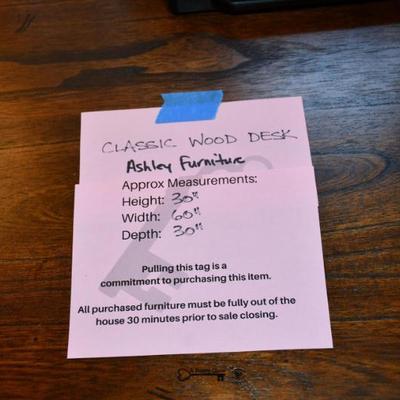 CLASSIC WOOD DESK
Ashley Furniture
Approx Measurements:
Height: 30"
Width: 60"
Depth: 30"
Pulling this tag is a
commitment to purchasing this item.
All purchased furniture must be fully out of the
house 30 minutes prior to sale closing.